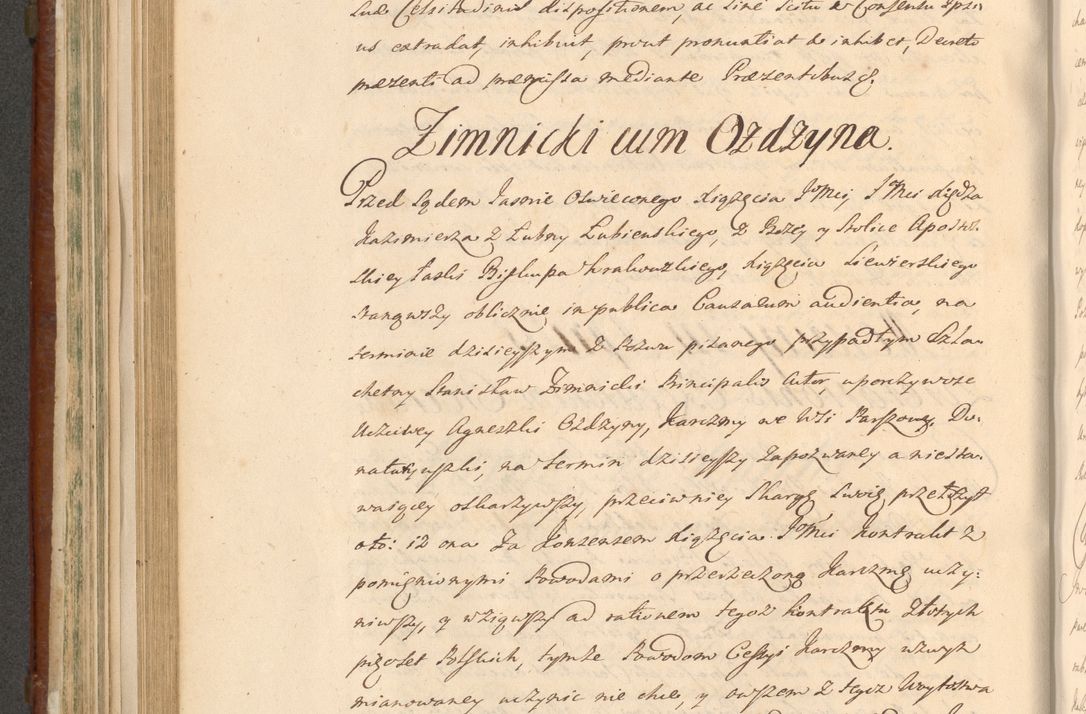 suæ Celsitudinis dispositionem, ac sine scitu & Consensu Ipsi-
us extradat, inhibuit, prout pronuntiat & inhibet, Decreto
præzenti ad præmissa mediante Præzentibus &c.
Zimnicki cum Ozdzyna.
Przed Sądem Jasnie Oswieconego Xiązęcia JoMci, JoMci Xiędza
Kazimierza z Łubny Łubienskiego, z Bozey y Stolice Apostol
skiey Łaski Biskupa Krakowskiego, Xiązęcia Siewierskiego
stanąwszy oblicznie in publica Causarum audientia, na
terminie dzisieyszym z Pozwu pisanego przypadłym Szla
chetny Stanisław Zimnicki Principalis Actor, uporczywosc
Uczciwey Agneszki Ozdzyny, Karczmy we Wsi Parszowę, Do-
naturyuszki, na termin dzisieyszy Zapozwaney a niesta-
waiącey oskarzywszy, przeciw niey Skargę swoię przełozył
oto: iz ona za Konsensem Xiązęcia JoMci Kontrakt z
pomienionymi Powodami o przerzeczoną Karczmę uczy-
niwszy, y wziąwszy ad rationem tegoz Kontraktu Złotych
pięcset Polskich, tymze Powodom Cessyi Karczmy wzwyz
mianowaney uczynic nie chce, y owszem z tegoz Woytostwa